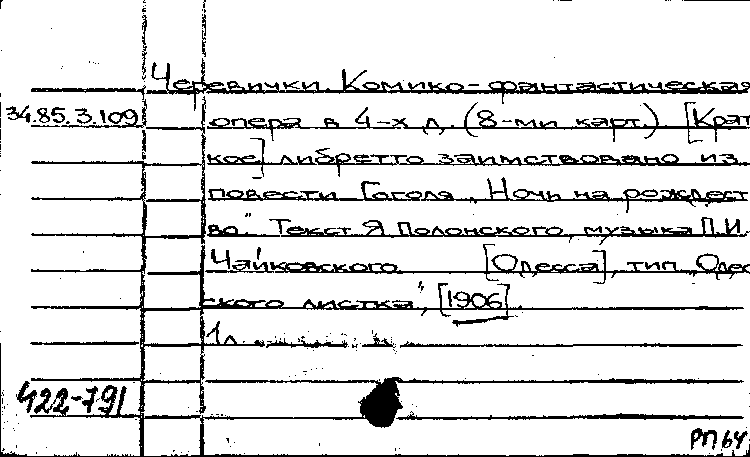 Черевички. Комико-фантастическая
34.85.3.109
опера в 4-х д. (8-ми карт.) [Крат
кое] либретто заимствовано из
повести Гоголя „Ночь на рождест
во". Текст Я Полонского, музыка П.И.
Чайковского. [Одесса], тип. „Одес
ского листка", [1906].
1л.
422-791
РП 64